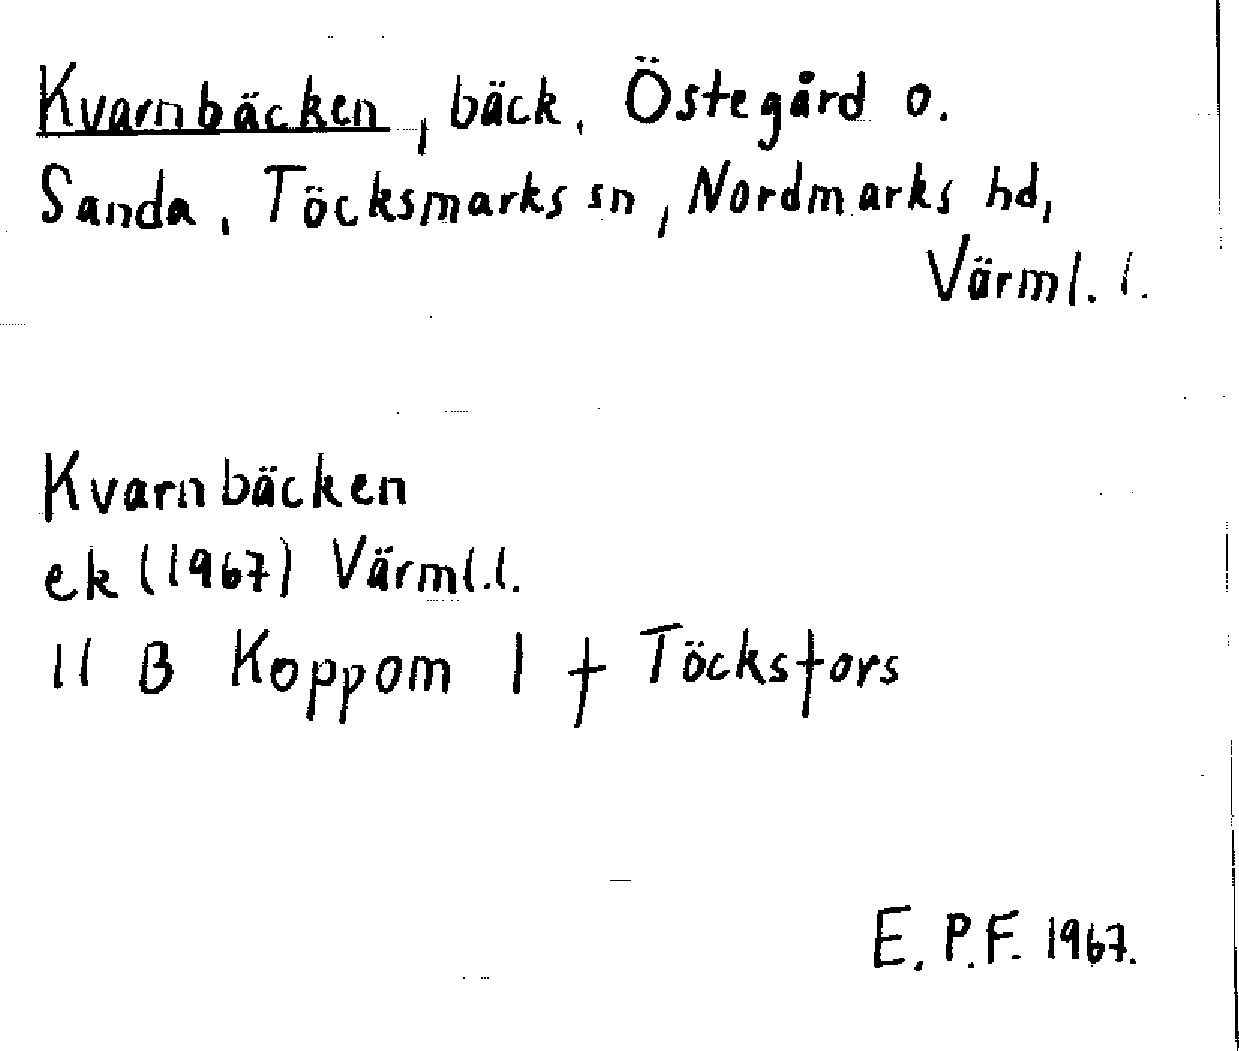 Kvarnbäcken, bäck, Östegård o.
Sanda, Töcksmarks sn, Nordmarks hd,
Värml. l.
Kvarnbäcken
ek (1967) Värml.l.
11 B Koppom 1 f Töcksfors
E. P.F. 1967.